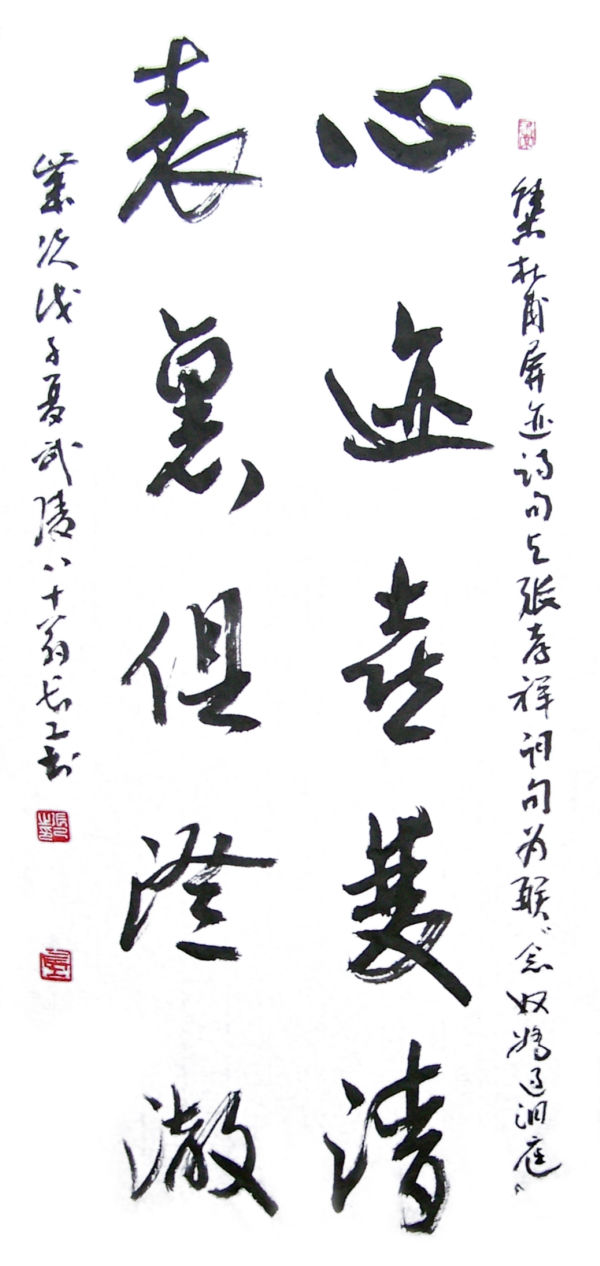 集杜甫屏迹诗句与张孝祥词句为联“念奴娇过洞庭”
心迹喜双清
表里俱澄澈
岁次戊子夏武陵八十翁长工书